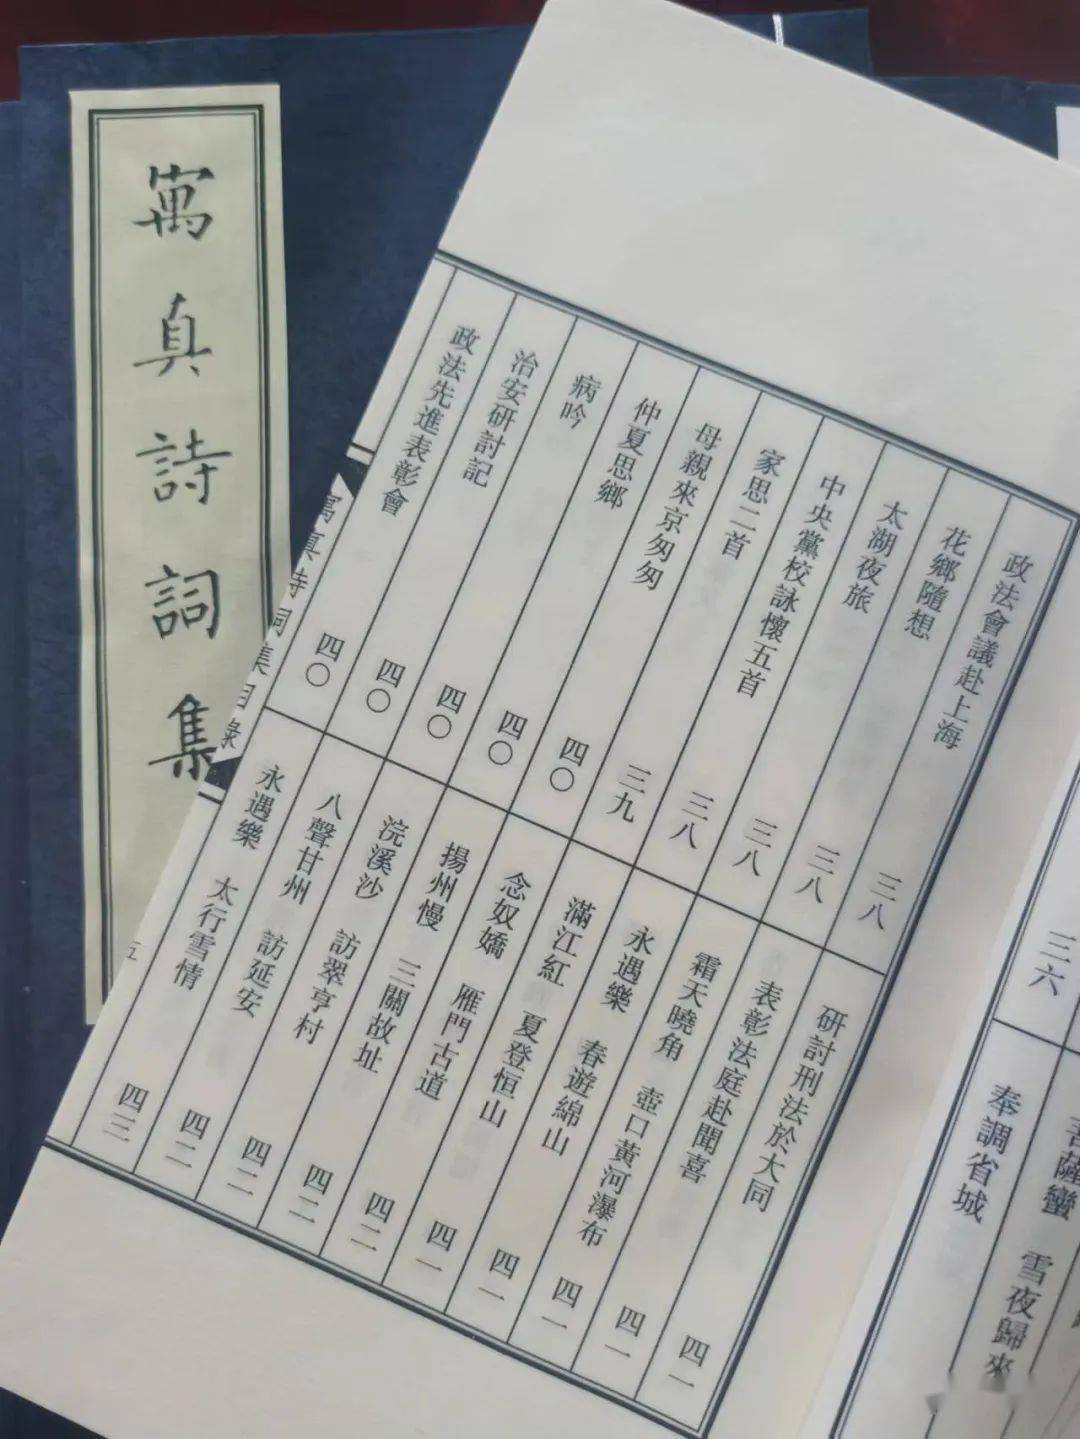 寓真詩詞集
三六
菩薩蠻 雪夜歸來
奉調省城
政法會議赴上海 三八
花鄉隨想 三八
太湖夜旅 三八
中央黨校詠懷五首 三八
家思二首 三九
母親來京匆匆 四〇
仲夏思鄉 四〇
病吟 四〇
治安研討記 四〇
政法先進表彰會 四〇
研討刑法於大同 四一
表彰法庭赴聞喜 四一
霜天曉角 壺口黃河瀑布 四一
永遇樂 春遊綿山 四一
滿江紅 夏登恒山 四一
念奴嬌 雁門古道 四二
揚州慢 三關故址 四二
浣溪沙 訪翠亨村 四二
八聲甘州 訪延安 四二
永遇樂 太行雪情 四三
寓真詩詞集目錄
五